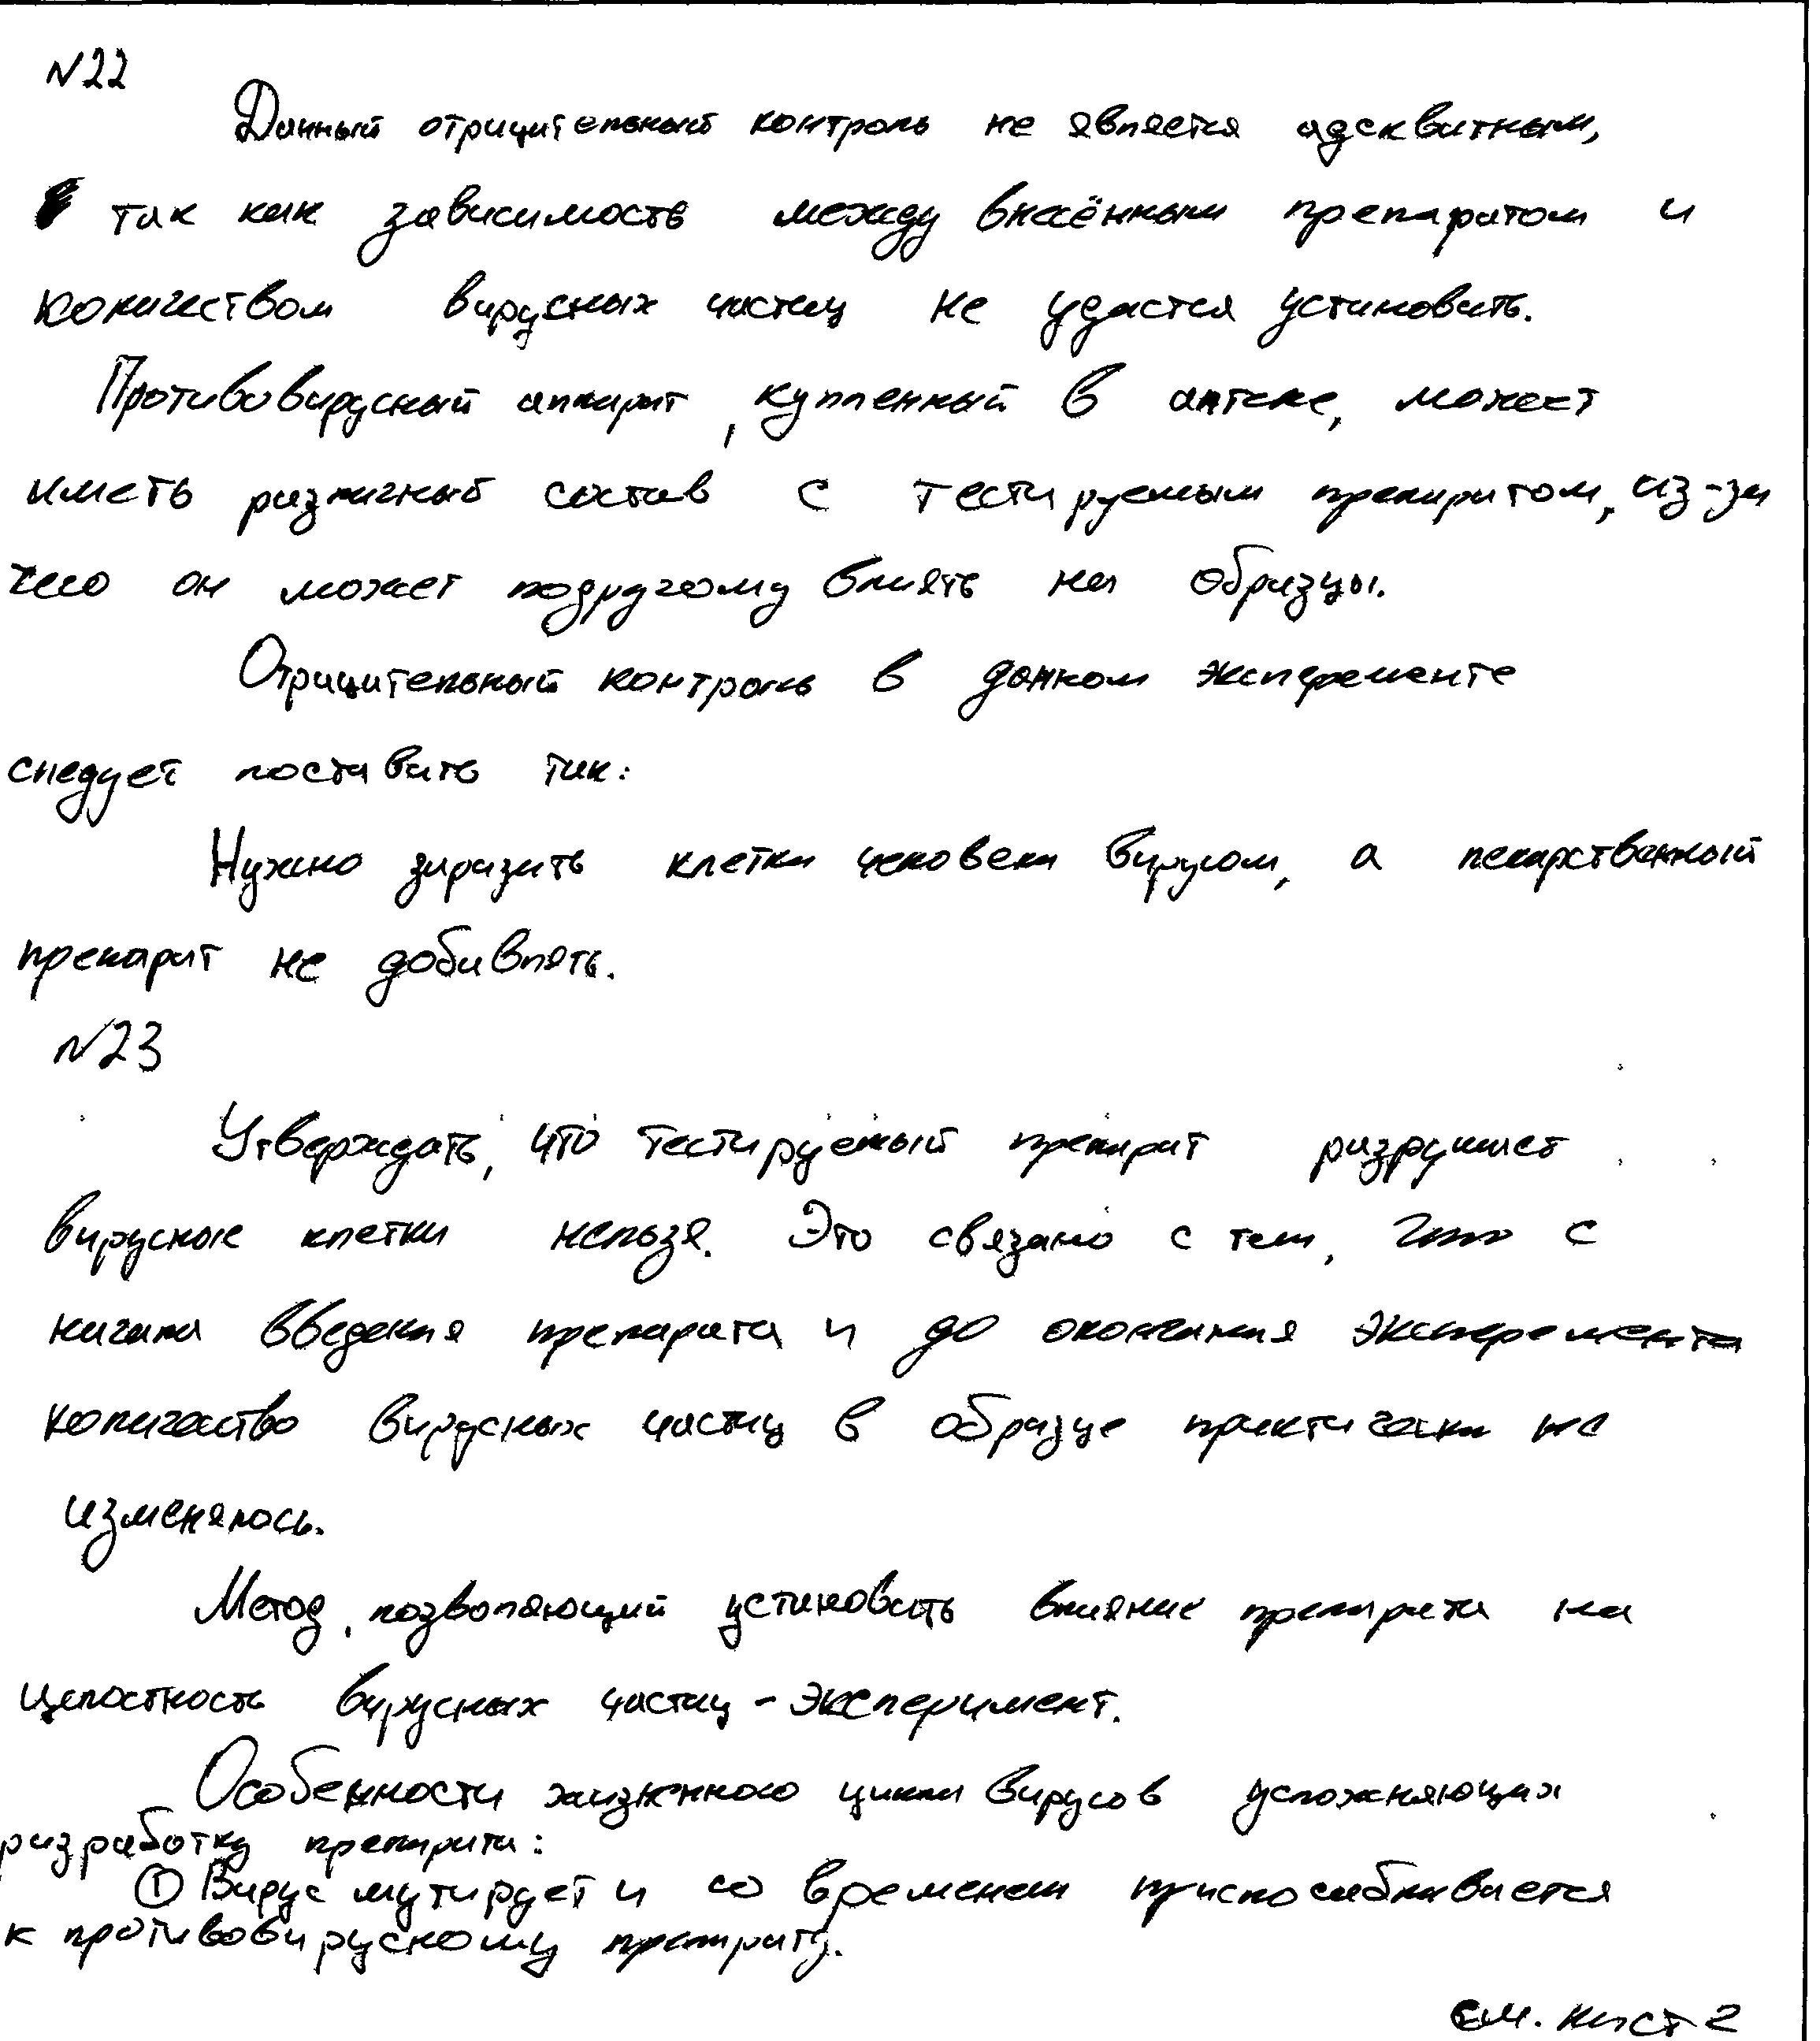 №22
Данный отрицительный контроль не является адекватным,
так как зависимость между внесённым препаратом и
количеством вирусных частиц не удастся установить.
Противовирусный аппарат, купленный в аптеке, может
иметь различный состав с тестируемым препаратом, из-за
чего он может подругому влиять на образцы.
Отрицительный контроль в данном эксперементе
следует поставить так:
Нужно заразить клетки человека вирусом, а лекарственный
препарат не добавлять.
№23
Утверждать, что тестируемый препарат разрушает
вирусные клетки нельзя. Это связано с тем, что с
начала введения препарата и до окончания эксперемента
количество вирусных частиц в образце практически не
изменялось.
Метод, позволяющий установить влияние препарата на
целостность вирусных частиц - эксперимент.
Особенности жизненного цикла вирусов усложняющих
разработку препарата:
① Вирус мутирует и со временем приспосабливается
к противовирусному препарату.
см. лист 2